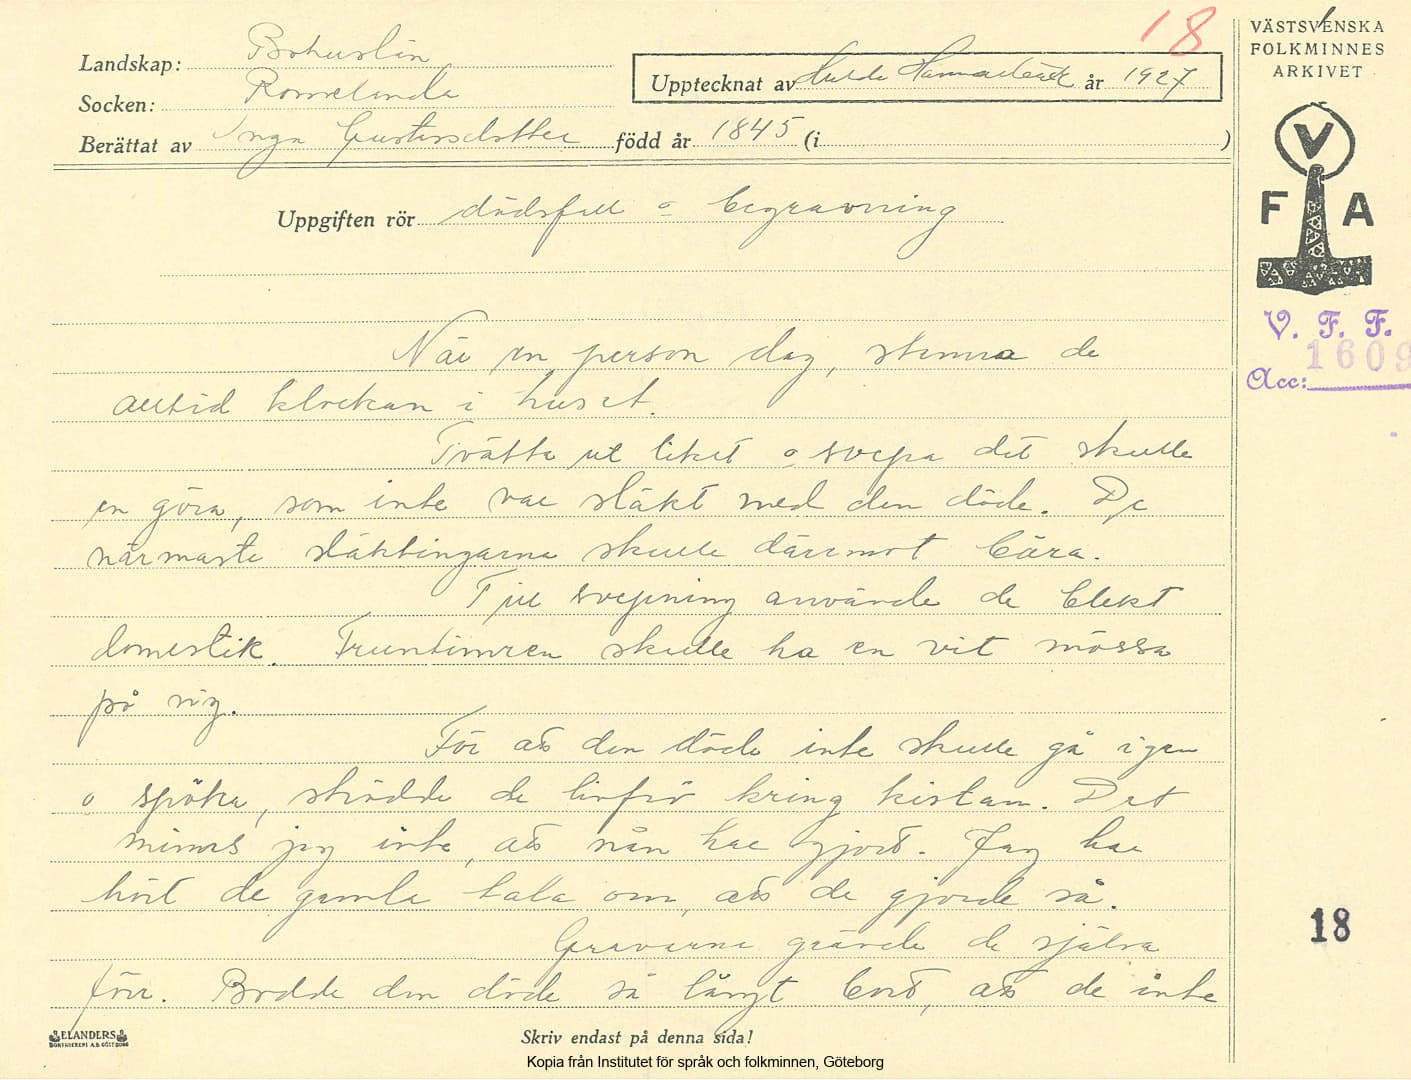 18
VÄSTSVENSKA
FOLKMINNES
ARKIVET
Landskap: Bohuslän
Socken: Romelanda
Upptecknat av Hulda Hammarbäck år 1927
Berättat av Inga Gustavsdotter född år 1845 (i )
V
F A
Uppgiften rör dödsfall o begravning
V. F. F.
Acc: 1609
När en person dog, stanna de
alltid klockan i huset.
Tvätta ut liket o svepa det skulle
en göra, som inte var släkt med den döde. De
närmaste släktingarna skulle däremot bära.
Till svepning använde de blekt
domestik. Fruntimren skulle ha en vit mössa
på sig.
För att den döde inte skulle gå igen
o spöka, strödde de linfrö kring kistan. Det
minns jag inte, att nån har gjort. Jag har
hört de gamla tala om, att de gjorde så.
Gravarna grävde de själva
förr. Bodde den döde så långt bort, att de inte
18
ELANDERS
BOKTRYCKERI A.B. GÖTEBORG
Skriv endast på denna sida!
Kopia från Institutet för språk och folkminnen, Göteborg